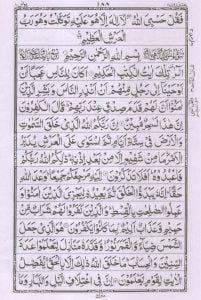 فَقُلْ حَسْبِيَ اللّٰهُ لَاۤ اِلٰهَ اِلَّا هُوَ عَلَيْهِ تَوَكَّلْتُ وَهُوَ رَبُّ
الْعَرْشِ الْعَظِيْمِ
بِسْمِ اللّٰهِ الرَّحْمٰنِ الرَّحِيْمِ
الٓرٰ تِلْكَ اٰيٰتُ الْكِتٰبِ الْحَكِيْمِ اَكَانَ لِلنَّاسِ عَجَبًا اَنْ
اَوْحَيْنَاۤ اِلٰى رَجُلٍ مِّنْهُمْ اَنْ اَنْذِرِ النَّاسَ وَبَشِّرِ الَّذِيْنَ
اٰمَنُوْۤا اَنَّ لَهُمْ قَدَمَ صِدْقٍ عِنْدَ رَبِّهِمْ قَالَ الْكٰفِرُوْنَ
اِنَّ هٰذَا لَسٰحِرٌ مُّبِيْنٌ اِنَّ رَبَّكُمُ اللّٰهُ الَّذِيْ خَلَقَ السَّمٰوٰتِ
وَالْاَرْضَ فِيْ سِتَّةِ اَيَّامٍ ثُمَّ اسْتَوٰى عَلَى الْعَرْشِ يُدَبِّرُ
الْاَمْرَ مَا مِنْ شَفِيْعٍ اِلَّا مِنْۢ بَعْدِ اِذْنِهٖ ذٰلِكُمُ اللّٰهُ رَبُّكُمْ
فَاعْبُدُوْهُ اَفَلَا تَذَكَّرُوْنَ اِلَيْهِ مَرْجِعُكُمْ جَمِيْعًا وَعْدَ اللّٰهِ
حَقًّا اِنَّهٗ يَبْدَؤُا الْخَلْقَ ثُمَّ يُعِيْدُهٗ لِيَجْزِيَ الَّذِيْنَ اٰمَنُوْا وَ
عَمِلُوا الصّٰلِحٰتِ بِالْقِسْطِ وَالَّذِيْنَ كَفَرُوْا لَهُمْ شَرَابٌ مِّنْ
حَمِيْمٍ وَّعَذَابٌ اَلِيْمٌۢ بِمَا كَانُوْا يَكْفُرُوْنَ هُوَ الَّذِيْ جَعَلَ
الشَّمْسَ ضِيَآءً وَّالْقَمَرَ نُوْرًا وَّقَدَّرَهٗ مَنَازِلَ لِتَعْلَمُوْا عَدَدَ
السِّنِيْنَ وَالْحِسَابَ مَا خَلَقَ اللّٰهُ ذٰلِكَ اِلَّا بِالْحَقِّ يُفَصِّلُ
الْاٰيٰتِ لِقَوْمٍ يَّعْلَمُوْنَ اِنَّ فِي اخْتِلَافِ الَّيْلِ وَالنَّهَارِ وَمَا